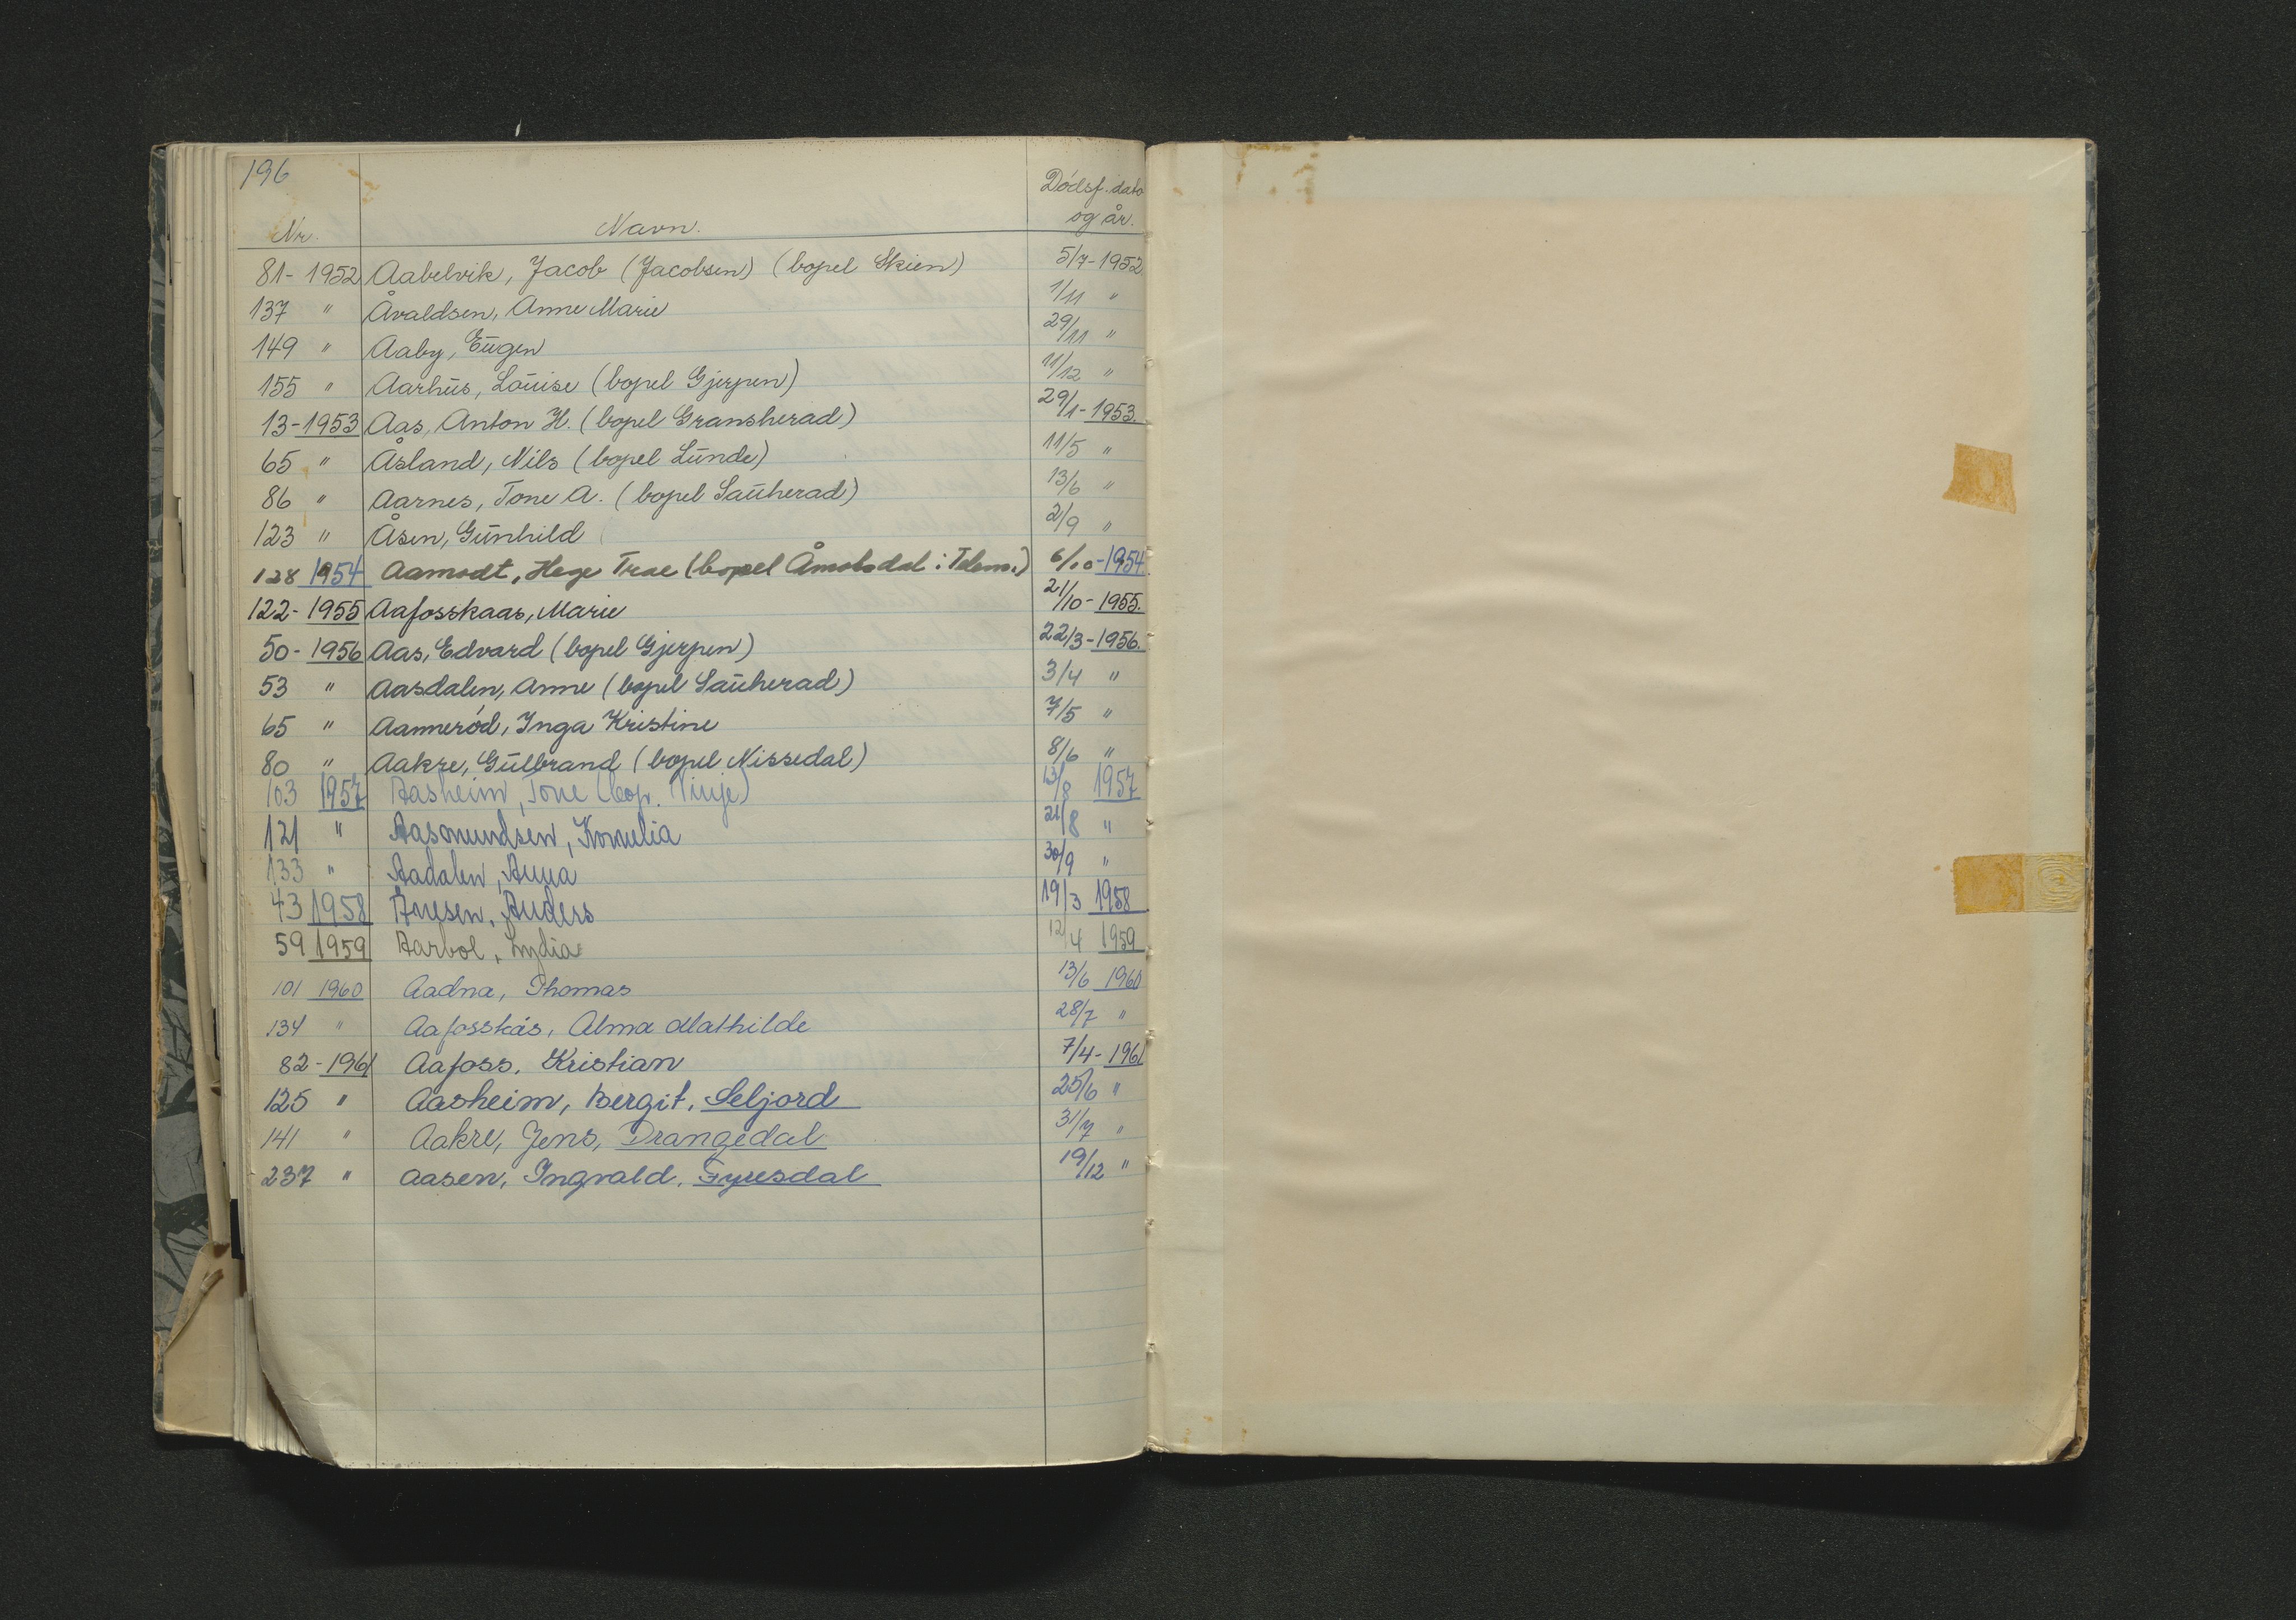 196
Nr. Navn. Dødsf. dato
og år.
81- 1952 Aabelvik, Jacob (Jacobsen) (bopel Skien) 5/7-1952
137 " Åvaldsen, Anne Marie 1/11 "
149 " Aaby, Eugen 29/11 "
155 " Aarhus, Louise (bopel Gjerpen) 11/12 "
13-1953 Aas, Anton H. (bopel Gransherad) 29/1-1953.
65 " Åsland, Nils (bopel Lunde) 11/5 "
86 " Aarnes, Tone A. (bopel Sauherad) 13/6 "
123 " Åsen, Gunhild 2/9 "
128 1954 Aamodt, Hege Trae (bopel Åmotsdal i Telem.) 6/10-1954.
122- 1955 Aafosskaas, Marie 21/10-1955.
50- 1956 Aas, Edvard (bopel Gjerpen) 22/3-1956.
53 " Aasdalen, Anne (bopel Sauherad) 3/4 "
65 " Aannerød, Inga Kristine 7/5 "
80 " Aakre, Gulbrand (bopel Nissedal) 8/6 "
103 1957 Aasheim, Tone (bop. Vinje) 13/8 1957
121 " Aasmundsen, Kornelia 21/8 "
133 " Aadalen, Anna 30/9 "
43 1958 Ånesen, Anders 19/3 1958
59 1959 Aarvol, Lydia 12/4 1959
101 1960 Aadna, Thomas 13/6 1960
134 " Aafosskås, Alma Mathilde 28/7 "
82-1961 Aafoss, Kristian 7/4-1961
125 " Aasheim, Bergit, Seljord 25/6 "
141 " Aakre, Jens, Drangedal 31/7 "
237 " Aasen, Ingvald, Fyresdal 19/12 "